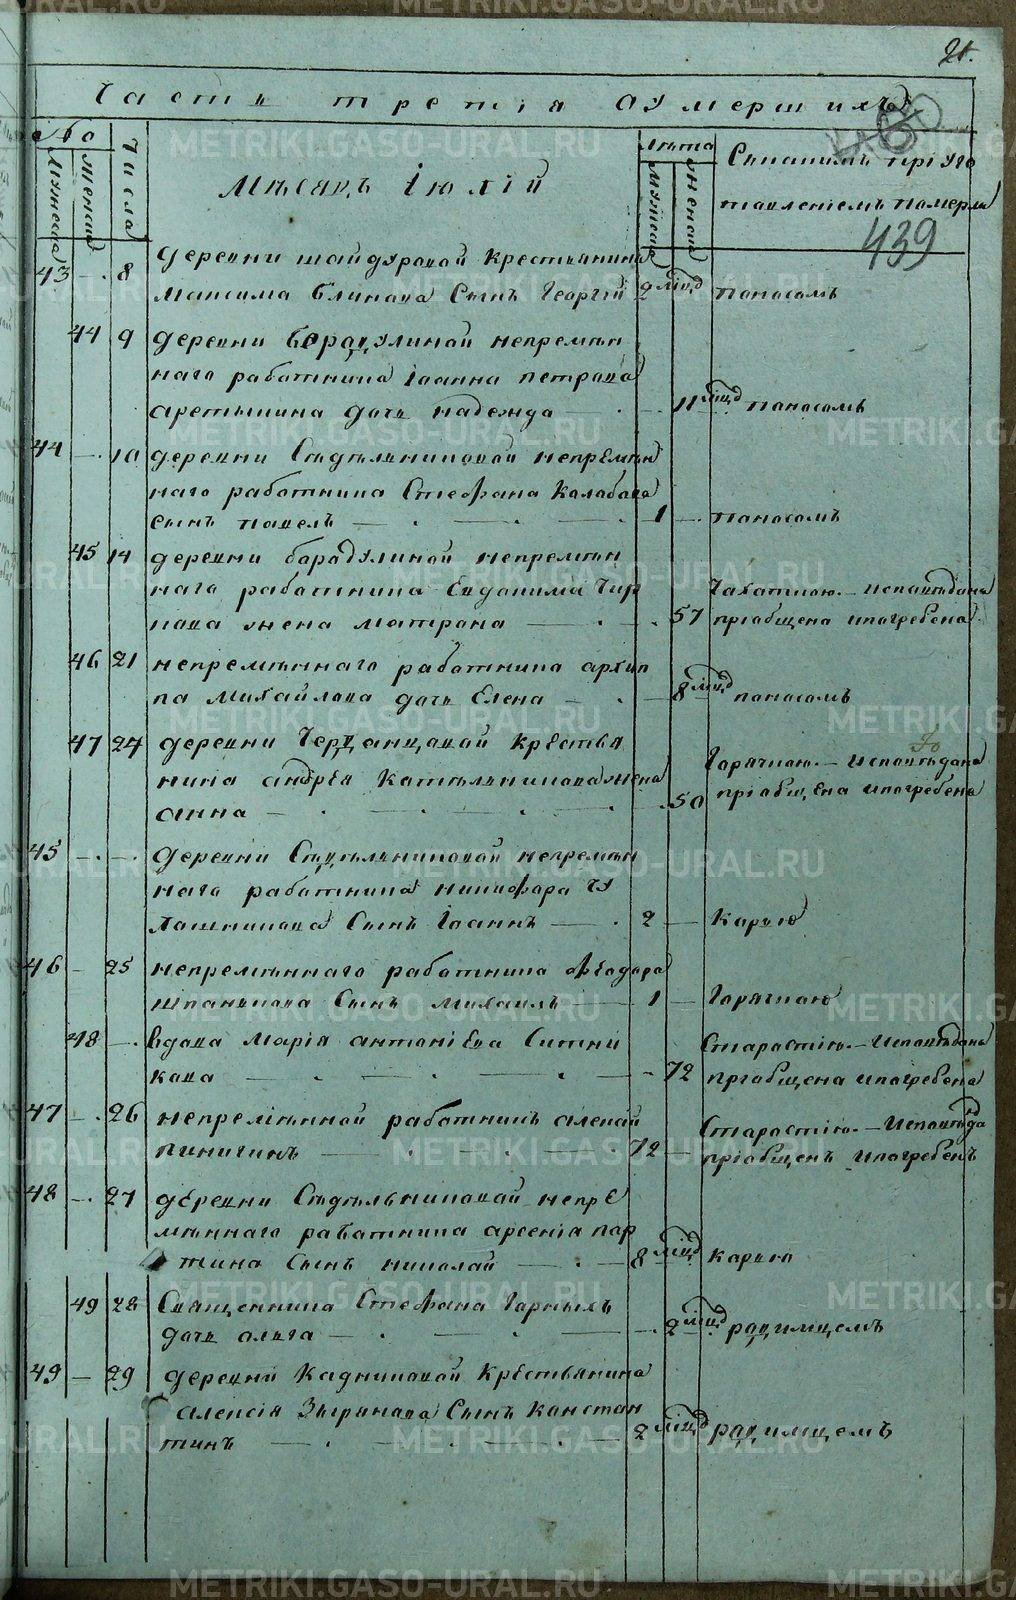 21.
Часть третія оумершихъ
439
№
мужеска
женска
числа
Мѣсяцъ Iюлій
лѣта
мужеска
женска
43 — 8 деревни шайдуровой крестьянина
Максима блинова Сынъ Георгій 2 мѣц поносомъ
44 9 деревни Бородулиной непремѣн
наго работника іоанна петрова
аретьнина дочь надежда — 11 мѣц поносомъ
44 — 10 деревни Сѣдѣльниковой непремѣн
наго работника Стефана Колобова
сынъ павелъ — 1 — поносомъ
45 14 деревни барадулиной непремѣн
наго работника Евдокима Чир
кова жена матрона — 57 Чахоткою. — исповѣдана
пріобщена ипогребена
46 21 непремѣннаго работника архип
па михайлова дочь Елена — 8 мѣц поносомъ
47 24 деревни Черданцовой крестья
нина андрея Котѣльникова жена
анна — 50 Горячкою. — Исповѣдана
пріобщена ипогребена
45 — деревни Сѣдѣльниковой непремѣн
наго работника никифора Чу
лошникова Сынъ Iоаннъ — 2 — Карью
46 — 25 непремѣннаго работника феодора
шпанькова Сынъ михаилъ — 1 — Горячкою
48 — вдова Марія антоніева Ситни
кова — 72 Старостію. — Исповѣдана
пріобщена ипогребена
47 — 26 непремѣнной работникъ алексій
пиничинъ — 72 — Старостію. — Исповѣда
пріобщенъ ипогребенъ
48 — 27 деревни Сѣдѣльниковой непре
мѣннаго работника арсенія пар
тина Сынъ николай — 8 мѣц карью
49 28 Священника Стефана Горныхъ
дочь ольга — 2 мѣц родимцемъ
49 — 29 деревни Кадниковой крестьянина
алексія Зырянова Сынъ констан
тинъ — 2 мѣц родимцемъ
METRIKI.GASO-URAL.RU